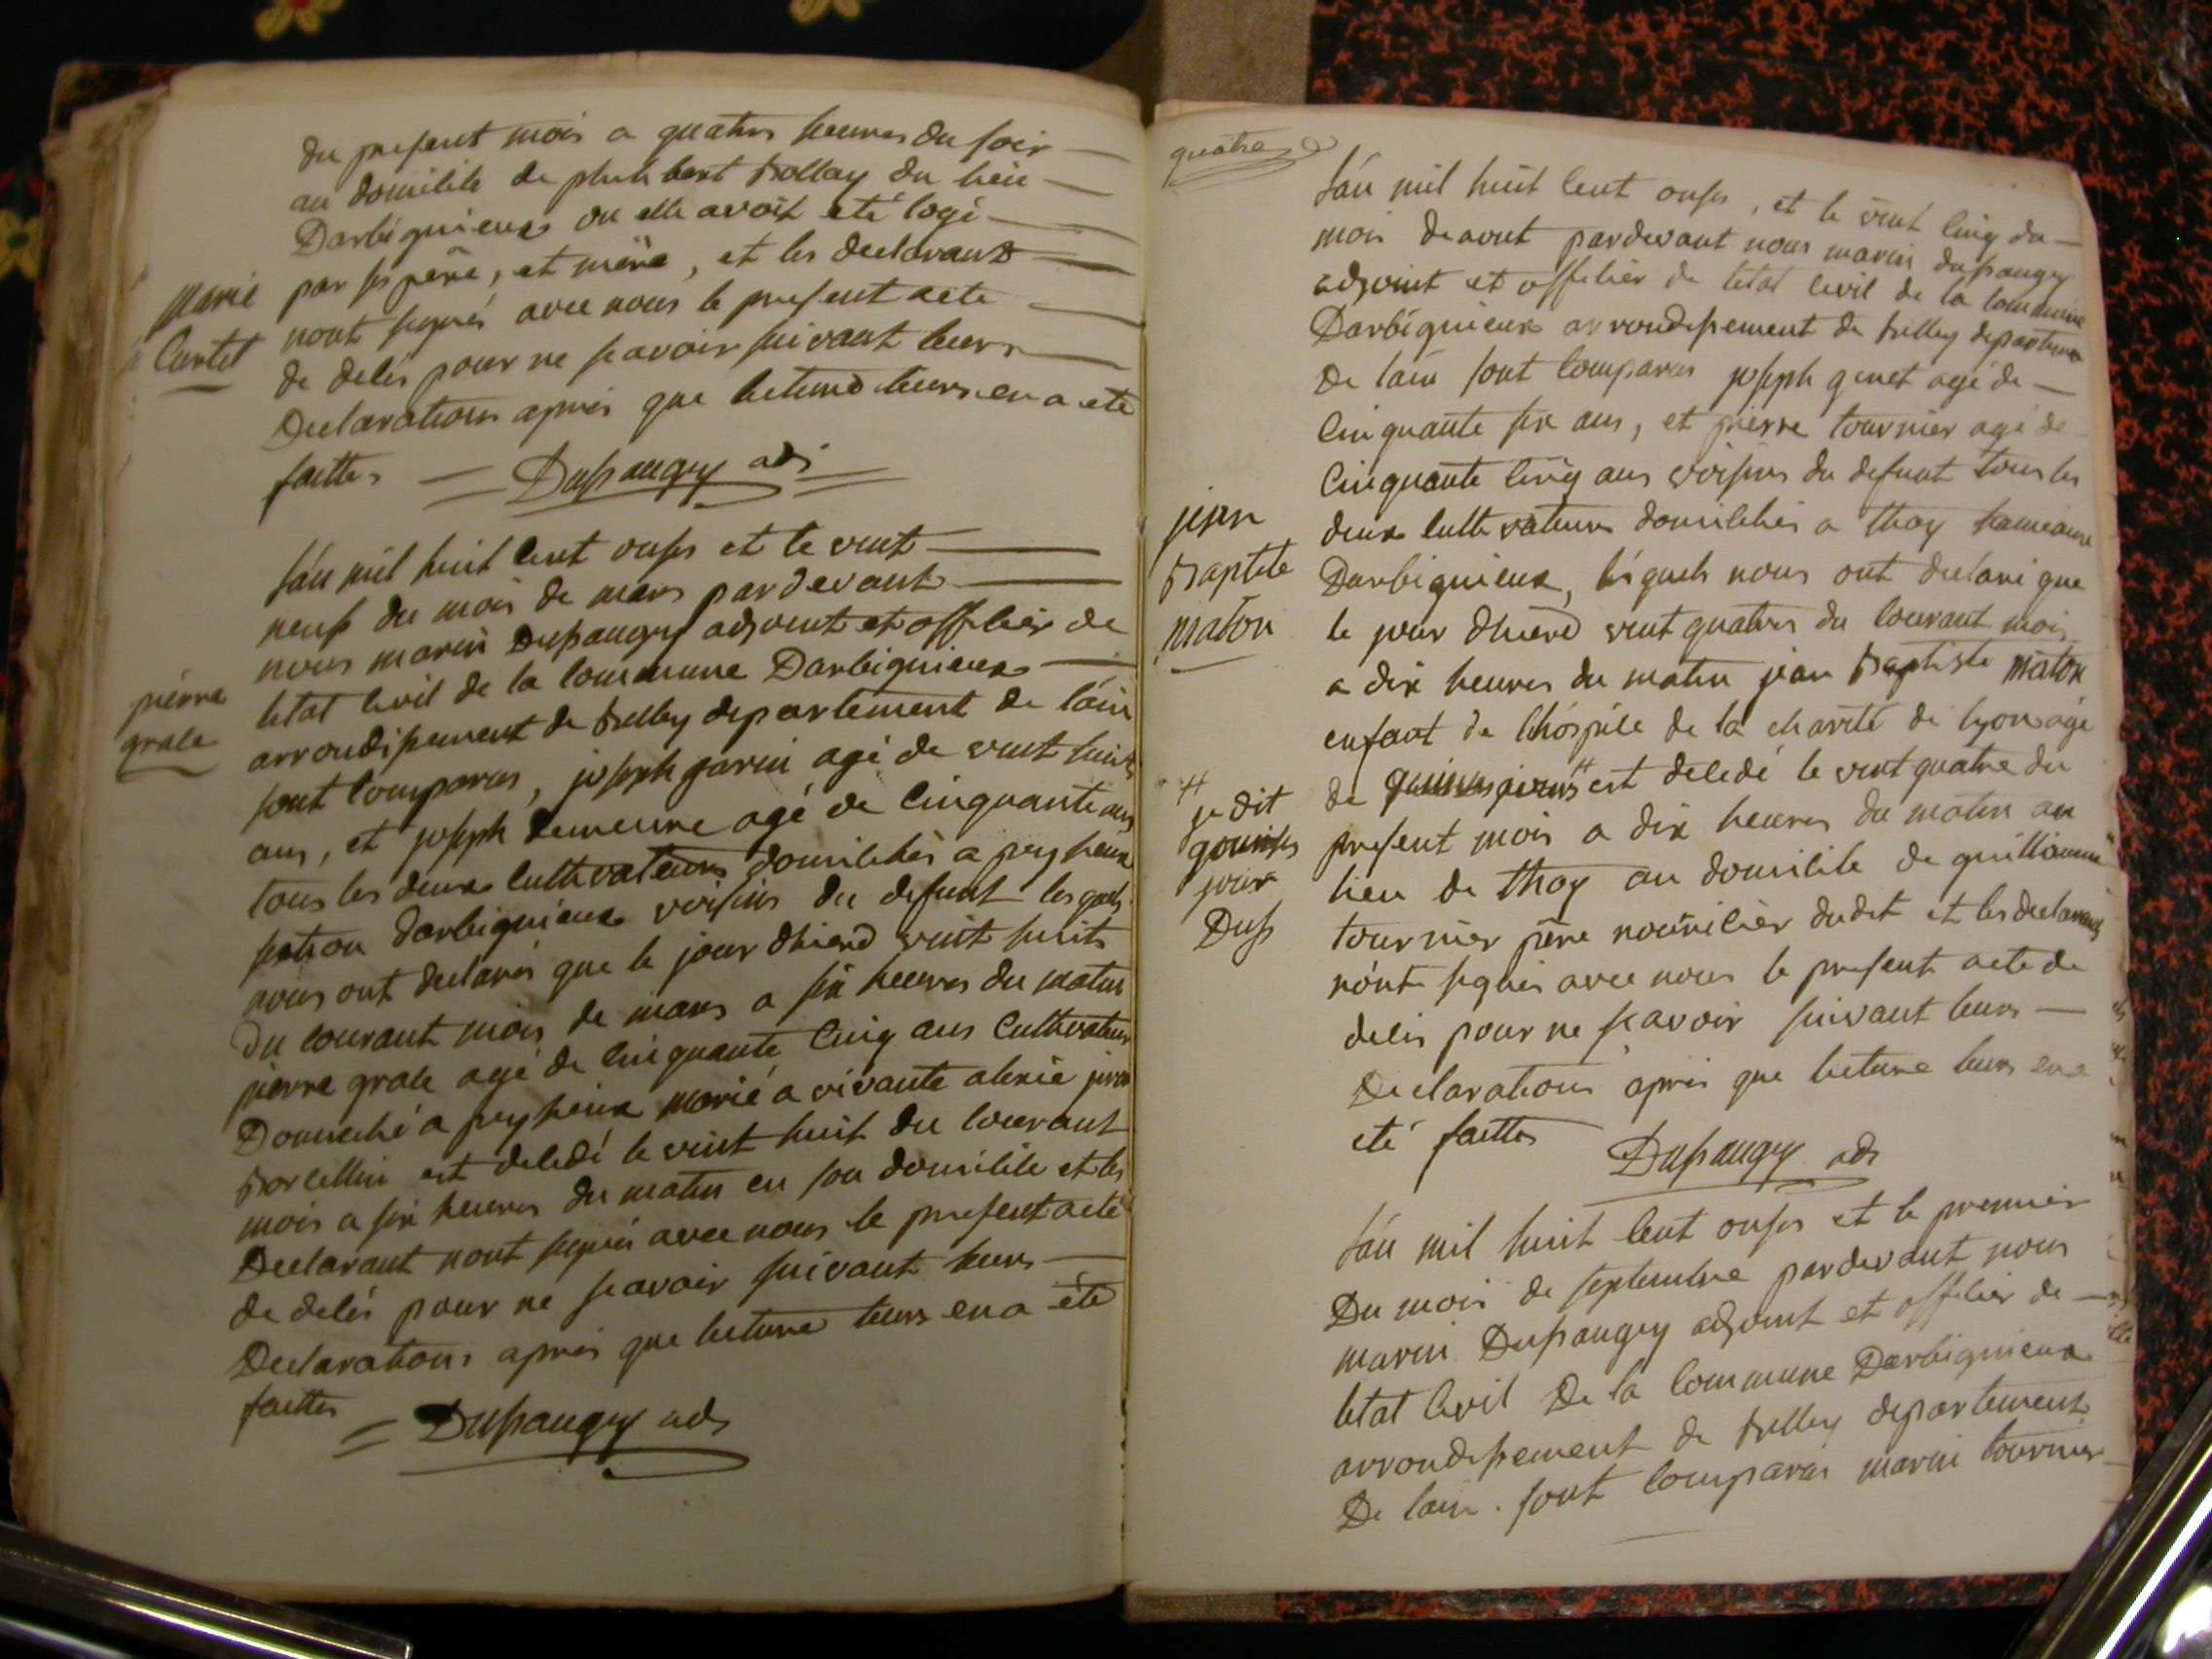 du present mois a quatres heures du soir
au domicile de philibert Bollay du lieu
Darbignieux ou elle avoit eté logé
par ses père, et mère, et les declarants
nont signés avec nous le present acte
de delés pour ne scavoir suivant leurs
Declarations après que lecture leurs en a eté
faittes Dupaugey adj
Marie
Curtet
lán mil huit cent onses et le vint
neuf du mois de mars pardevant
nous marin Dupaugey adjoint et officier de
letat civil de la commune Darbignieux
arrondissement de Belley departement de láin
sont comparus, joseph garin agé de vint huit
ans, et joseph demeure agé de cinquante ans
tous les deux cultivateurs domiciliés a peyzieux
section darbignieux voisins du defunt lesquels
nous ont declarés que le jour dhierd vint huit
du courant mois de mars a six heures du matin
pierre grale agé de cinquante cinq ans cultivateur
Domicilié a peyzieux marié a vivante alexie
est deledé le vint huit du courant
mois a six heures du matin en son domicile et les
Declarant nont signés avec nous le present acte
de delés pour ne scavoir suivant leurs
Declarations après que lecture leurs en a été
faittes Dupaugey adj
pierre
grale
quatre
lán mil huit cent onses, et le vint cinq du
mois de aout pardevant nous marin dupaugey
adjoint et officier de letat civil de la commune
Darbignieux arrondissement de belley departement
De láin sont comparus joseph genet agé de
cinquante six ans, et pierre tournier agé de
cinquante cinq ans voisins du defunt tous les
deux cultivateurs domiciliés a thoy hameaux
Darbignieux, lésquels nous ont declaré que
le jour dhierd vint quatres du courant mois
a dix heures du matin jean Baptiste maton
enfant de lhóspice de la charité de lyon agé
de quinses jours # est deledé le vint quatre du
present mois a dix heures du matin au
lieu de thoy au domicile de guillaume
tournier père nouricier dudit et les declarants
nónt signés avec nous le present acte de
delés pour ne scavoir suivant leurs
Declarations après que lecture leurs en a
eté faittes Dupaugey adj
jean
Baptite
maton
# je dit
quinses
jours
Dup
lán mil huit cent onses et le premier
Du mois de septembre pardevant nous
marin Dupaugey adjoint et officier de
letat civil De la commune Darbignieux
arrondissement de belley departement
De láin. sont comparus marin tournier